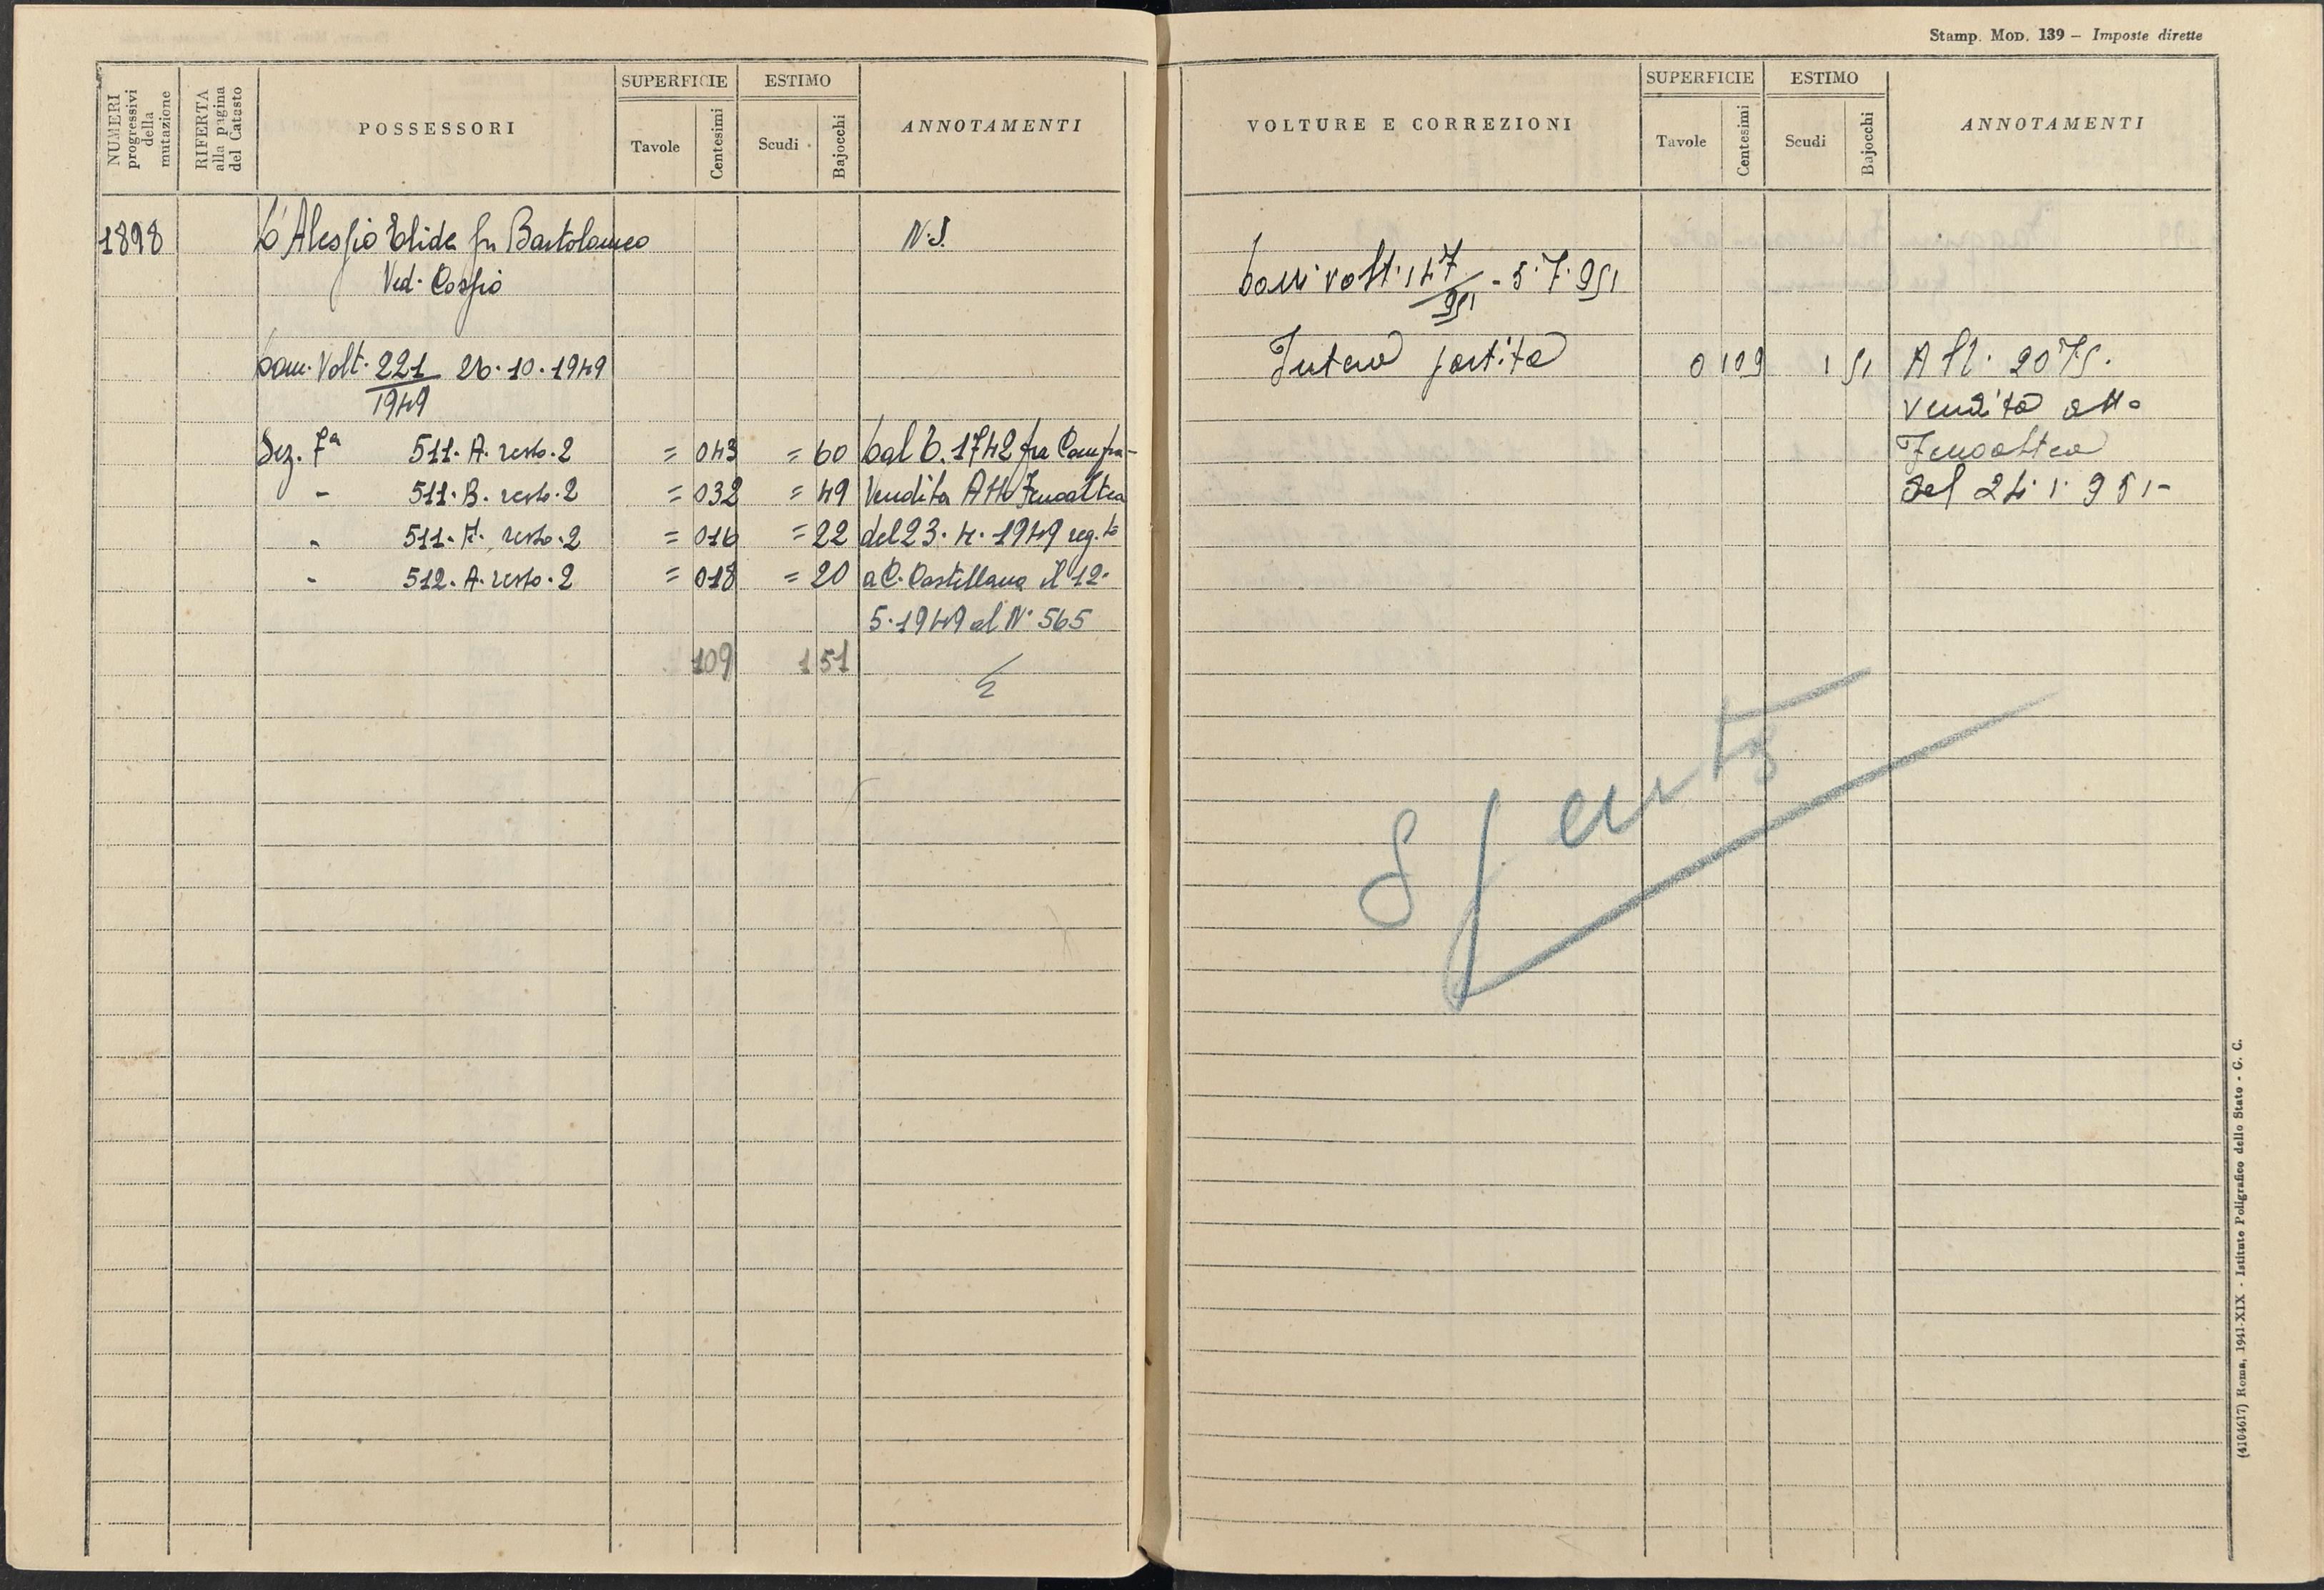 NUMERI progressivi della mutazione
RIFERTA alla pagina del Catasto
POSSESSORI
SUPERFICIE
Tavole
Centesimi
ESTIMO
Scudi
Bajocchi
ANNOTAMENTI
1898
D'Alessio Elide fu Bartolomeo
N.S.
Ved. Cossio
Dom. Volt. 221/1949 26.10.1949
Sez. 7a 511. A. resto. 2 = 043 = 60 Dal D. 1742 fra Compra-
- 511. B. resto. 2 = 032 = 49 Vendita Atto Fenoaltea
- 511. F. resto. 2 = 016 = 22 del 23.4.1949 reg.to
- 512. A. resto. 2 = 018 = 20 a C. Castellana il 12.
5.1949 al N. 565
109 1 51
Stamp. Mod. 139 – Imposte dirette
VOLTURE E CORREZIONI
SUPERFICIE
Tavole
Centesimi
ESTIMO
Scudi
Bajocchi
ANNOTAMENTI
volt. 147/951 - 5.7.951
Intera partita 0 109 1 51 All. 2075.
vendita atto
Fenoaltea
del 24.1.951-
Spenta
(4104617) Roma, 1941-XIX - Istituto Poligrafico dello Stato - G. C.